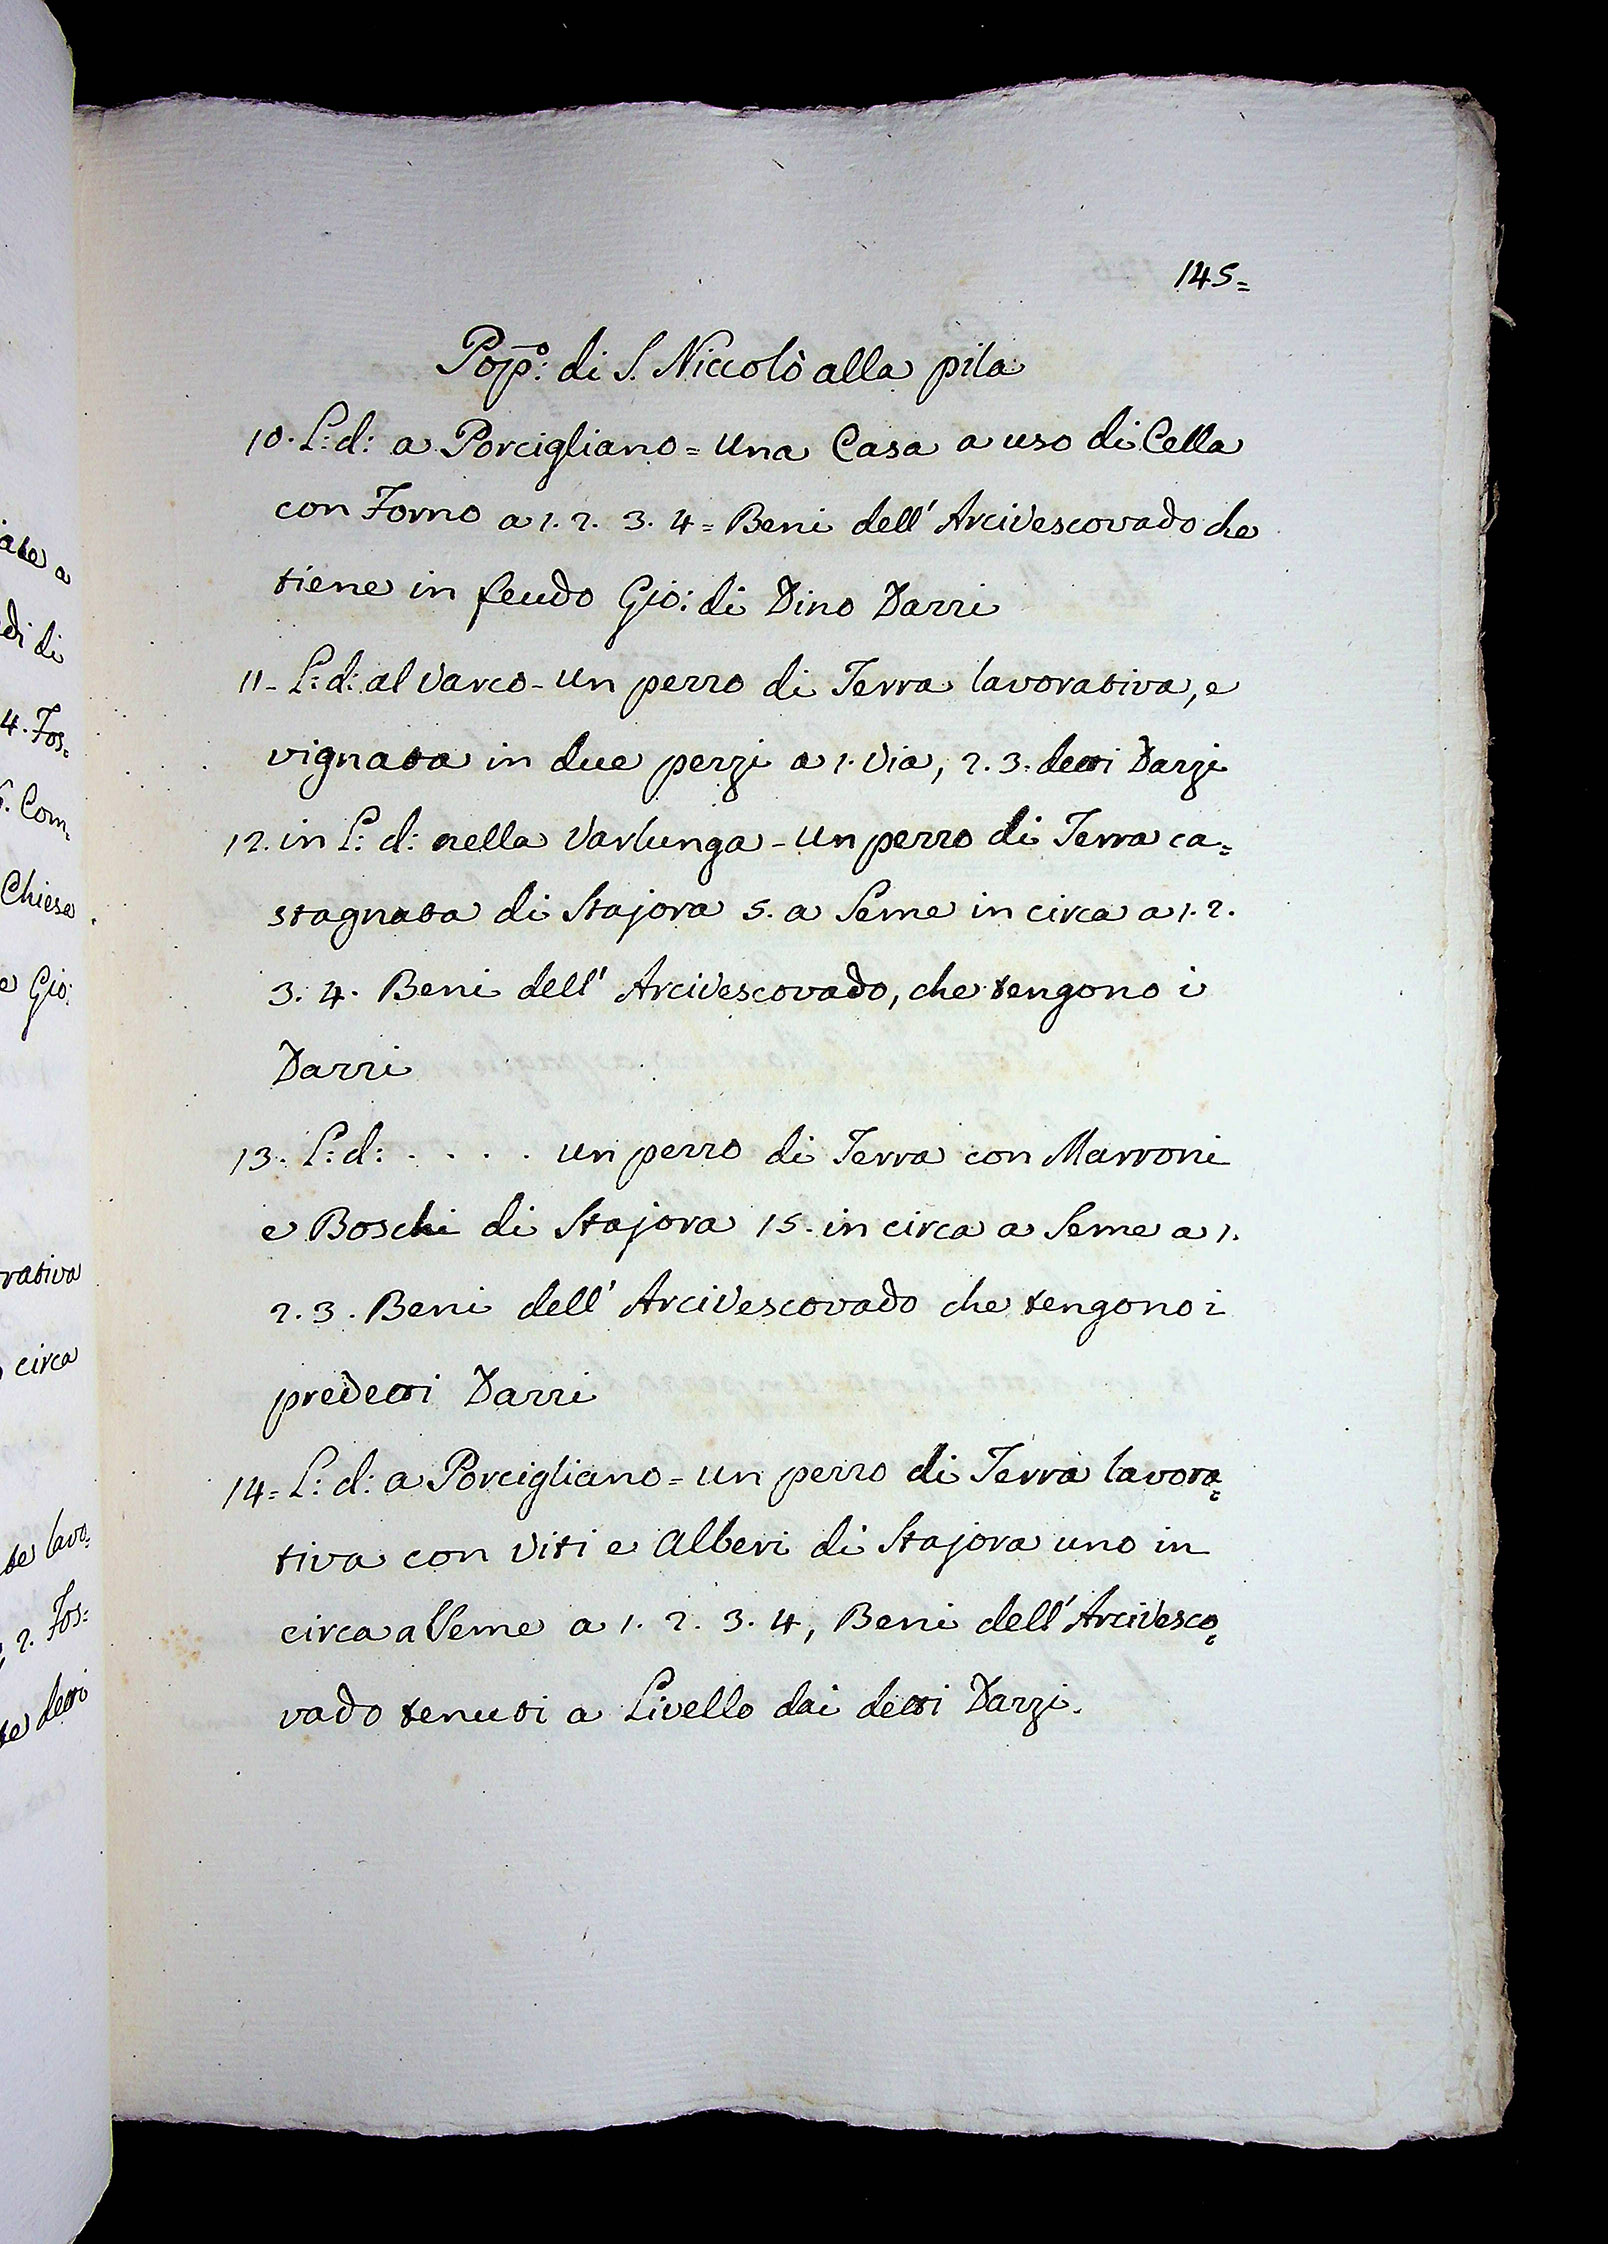 ate a
di di
4. Fos=
6. Com=
Chiesa.
e Gio:
rativa
circa
te lavo=
2. Fos=
te detti
145=
Popo: di S. Niccolò alla pila
10. L: d: a Porcigliano = una Casa a uso di Cella
con Forno a 1. 2. 3. 4 = Beni dell' Arcivescovado che
tiene in feudo Gio: di Dino Dazzi
11 - L: d: al Varco - un pezzo di Terra lavorativa, e
vignata in due pezzi a 1. Via, 2. 3. detti Dazzi
12. in L: d: nella Varlunga - un pezzo di Terra ca=
stagnata di Stajora 5. a Seme in circa a 1. 2.
3. 4. Beni dell' Arcivescovado, che tengono i
Dazzi
13. L: d: . . . . un pezzo di Terra con Marroni
e Boschi di Stajora 15. in circa a Seme a 1.
2. 3. Beni dell' Arcivescovado che tengono i
predetti Dazzi
14 = L: d: a Porcigliano = un pezzo di Terra lavora=
tiva con viti e Alberi di Stajora uno in
circa a Seme a 1. 2. 3. 4, Beni dell' Arcivesco=
vado tenuti a Livello dai detti Dazzi.